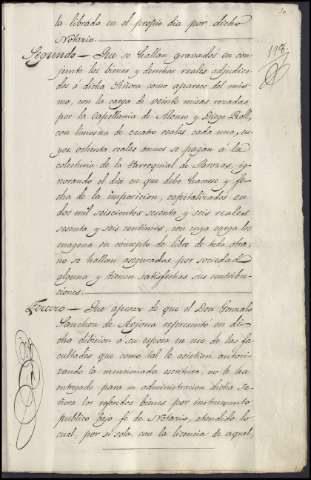 la librada en el propio dia por dicho
Notario.
Segundo — Que se hallan gravados en con-
junto los bienes y derechos reales adjudica-
dos á dicha Señora como aparece del mis-
mo, con la carga de veinte misas rezadas
por la Capellania de Alonso y Diego
con limosna de cuatro reales cada una, cu-
yos ochenta reales anuos se pagan á la
colecturia de la Parroquial de ig-
norando el dia en que debe hacerse y fe-
cha de la imposicion, capitalizados en
dos mil seiscientos sesenta y seis reales
sesenta y seis centimos, con cuya carga los
imagena en concepto de libre de toda otra,
no se hallan asegurados por sociedad
alguna y tienen satisfechas sus contribu-
ciones.
Tercero — Que apesar de que el Don Gonzalo
Sanchez de Arjona represento en di-
cha division a su esposa en uso de las fa-
cultades que como tal le asistian autori-
zando la mencionada escritura, no le ha
entregado para su administracion dicha Se-
ñora los referidos bienes por instrumento
publico bajo fé de Notario, atendido lo
cual, por si sola, con la licencia de aquel,